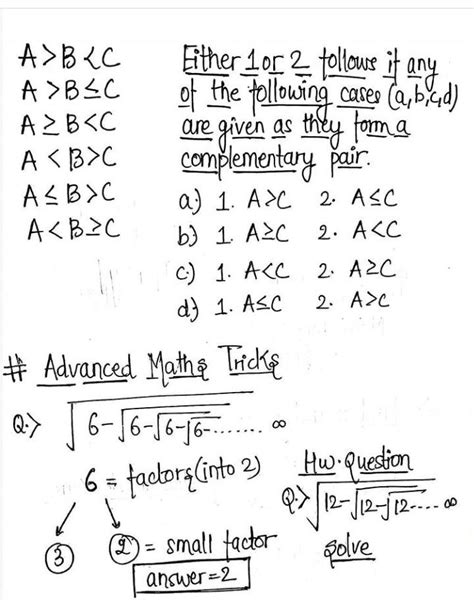 A>B<C
A>B≤C
A≥B<C
A<B>C
A≤B>C
A<B≥C
Either 1 or 2 follows if any
of the following cases (a,b,c,d)
are given as they form a
complementary pair.
a) 1. A>C 2. A≤C
b) 1. A≥C 2. A<C
c) 1. A<C 2. A≥C
d) 1. A≤C 2. A>C
# Advanced Maths Tricks
Q.> √6-√6-√6-√6-....... ∞
6 = factors (into 2)
3 2 = small factor
answer=2
Hw. Question
Q.> √12-√12-√12-.... ∞
solve